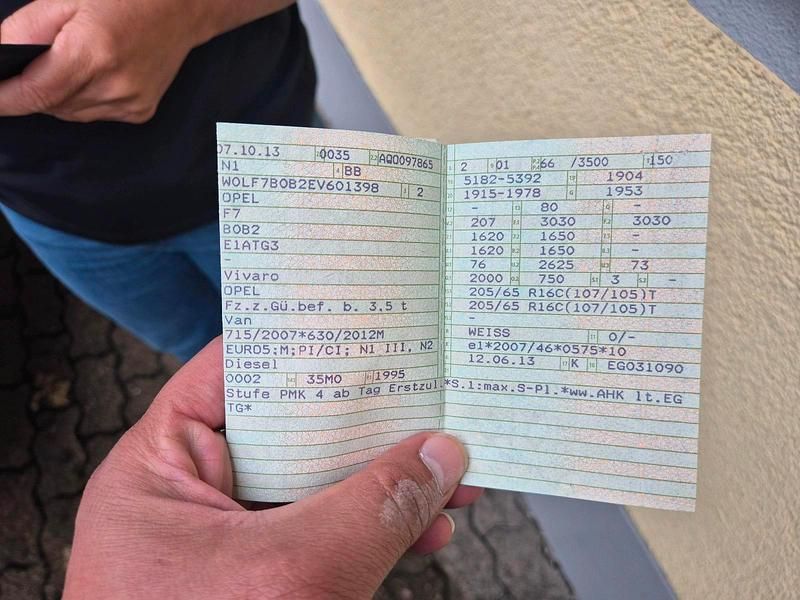 07.10.13 0035 AQQ097865
N1 BB
WOLF7BOB2EV601398 2
OPEL
F7
BOB2
E1ATG3
-
Vivaro
OPEL
Fz.z.Gü.bef. b. 3.5 t
Van
715/2007*630/2012M
EURO5;M;PI/CI; N1 III, N2
Diesel
0002 35MO 1995
Stufe PMK 4 ab Tag Erstzul.*S.1:max.S-Pl.*ww.AHK lt.EG
TG*
2 01 66 /3500 150
5182-5392 1904
1915-1978 1953
- 80 -
207 3030 3030
1620 1650 -
1620 1650 -
76 2625 73
2000 750 3 -
205/65 R16C(107/105)T
205/65 R16C(107/105)T
-
WEISS 0/-
e1*2007/46*0575*10
12.06.13 K EG031090